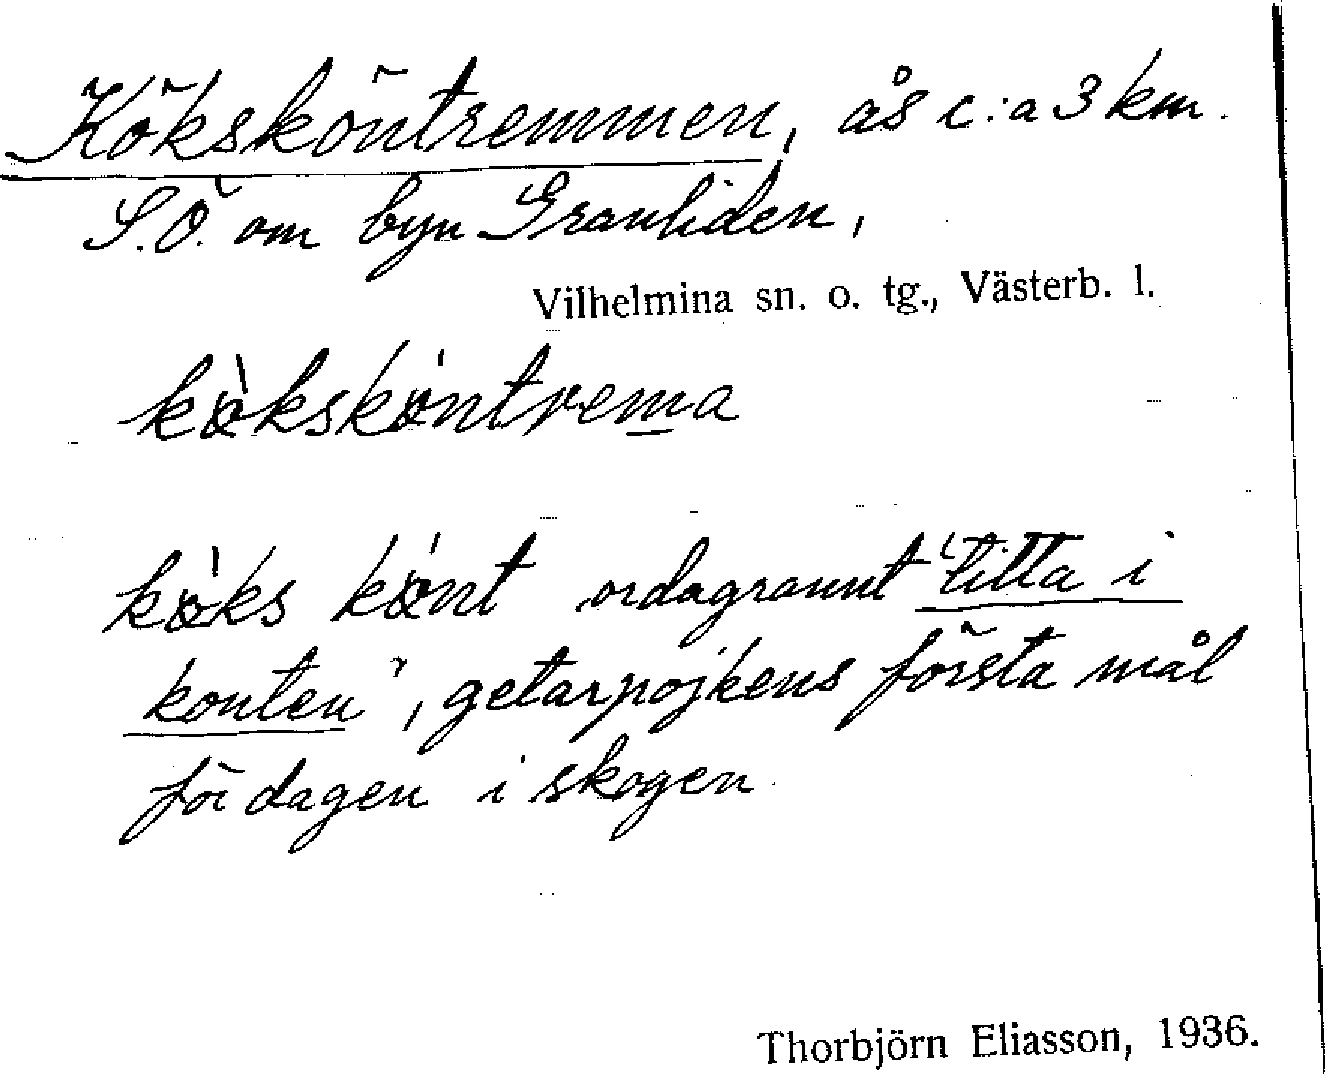 Köksköntremmen, ås c:a 3 km.
S.Ö. om byn Granliden,
Vilhelmina sn. o. tg., Västerb. l.
kö̀ksköntrema
kö̀ks könt ordagrannt "titta i
konten", getarpojkens första mål
för dagen i skogen
Thorbjörn Eliasson, 1936.